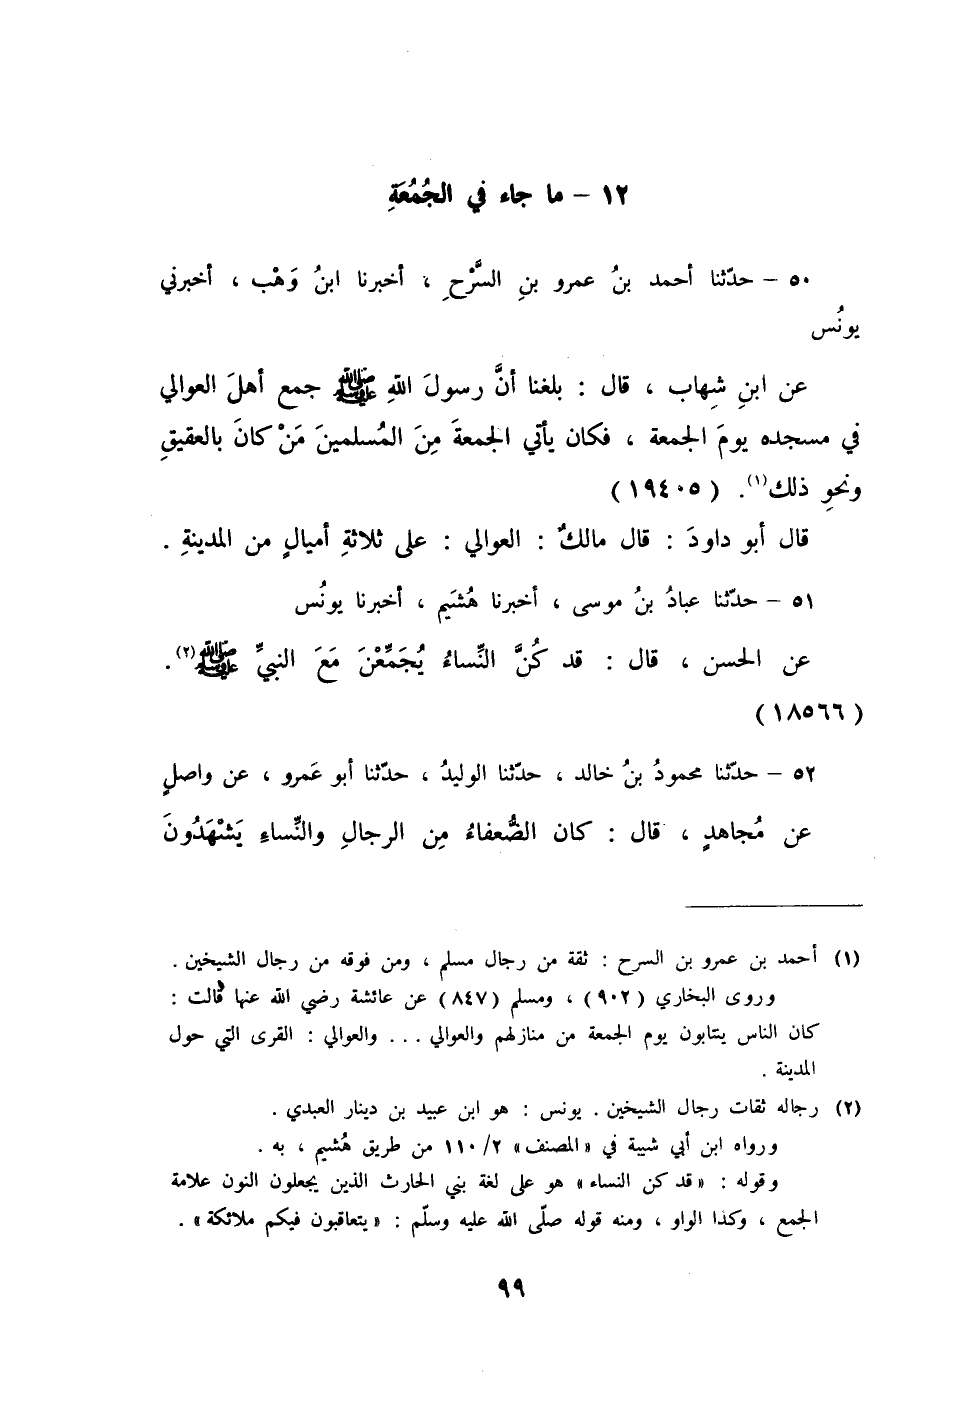 ١٢ – ما جاء في الجُمُعَةِ
٥٠ – حدّثنا أحمد بنُ عمرو بنِ السَّرْحِ ، أخبرنا ابنُ وَهْب ، أخبرني
يونُس
عن ابنِ شِهاب ، قال : بلغنا أنَّ رسولَ اللهِ ﷺ جمع أهلَ العوالي
في مسجده يومَ الجمعة ، فكان يأتي الجمعةَ مِنَ المُسلمينَ مَنْ كانَ بالعقيقِ
ونحوِ ذلك(١). (١٩٤٠٥)
قال أبو داودَ : قال مالكٌ : العوالي : على ثلاثةِ أميالٍ من المدينةِ .
٥١ – حدّثنا عبادُ بنُ موسى ، أخبرنا هُشَيم ، أخبرنا يونُس
عن الحسن ، قال : قد كُنَّ النِّساءُ يُجَمِّعْنَ مَعَ النبيِّ ﷺ(٢) .
(١٨٥٦٦)
٥٢ – حدّثنا محمودُ بنُ خالد ، حدّثنا الوليدُ ، حدّثنا أبو عَمرو ، عن واصلٍ
عن مُجاهدٍ ، قال : كان الضُّعفاءُ مِن الرجالِ والنِّساءِ يَشْهَدُونَ
(١) أحمد بن عمرو بن السرح : ثقة من رجال مسلم ، ومن فوقه من رجال الشيخين .
وروى البخاري (٩٠٢) ، ومسلم (٨٤٧) عن عائشة رضي الله عنها قالت :
كان الناس ينتابون يوم الجمعة من منازلهم والعوالي ... والعوالي : القرى التي حول
المدينة .
(٢) رجاله ثقات رجال الشيخين . يونس : هو ابن عبيد بن دينار العبدي .
ورواه ابن أبي شيبة في «المصنف» ٢/ ١١٠ من طريق هُشيم ، به .
وقوله : «قد كن النساء» هو على لغة بني الحارث الذين يجعلون النون علامة
الجمع ، وكذا الواو ، ومنه قوله صلّى الله عليه وسلّم : «يتعاقبون فيكم ملائكة» .
٩٩